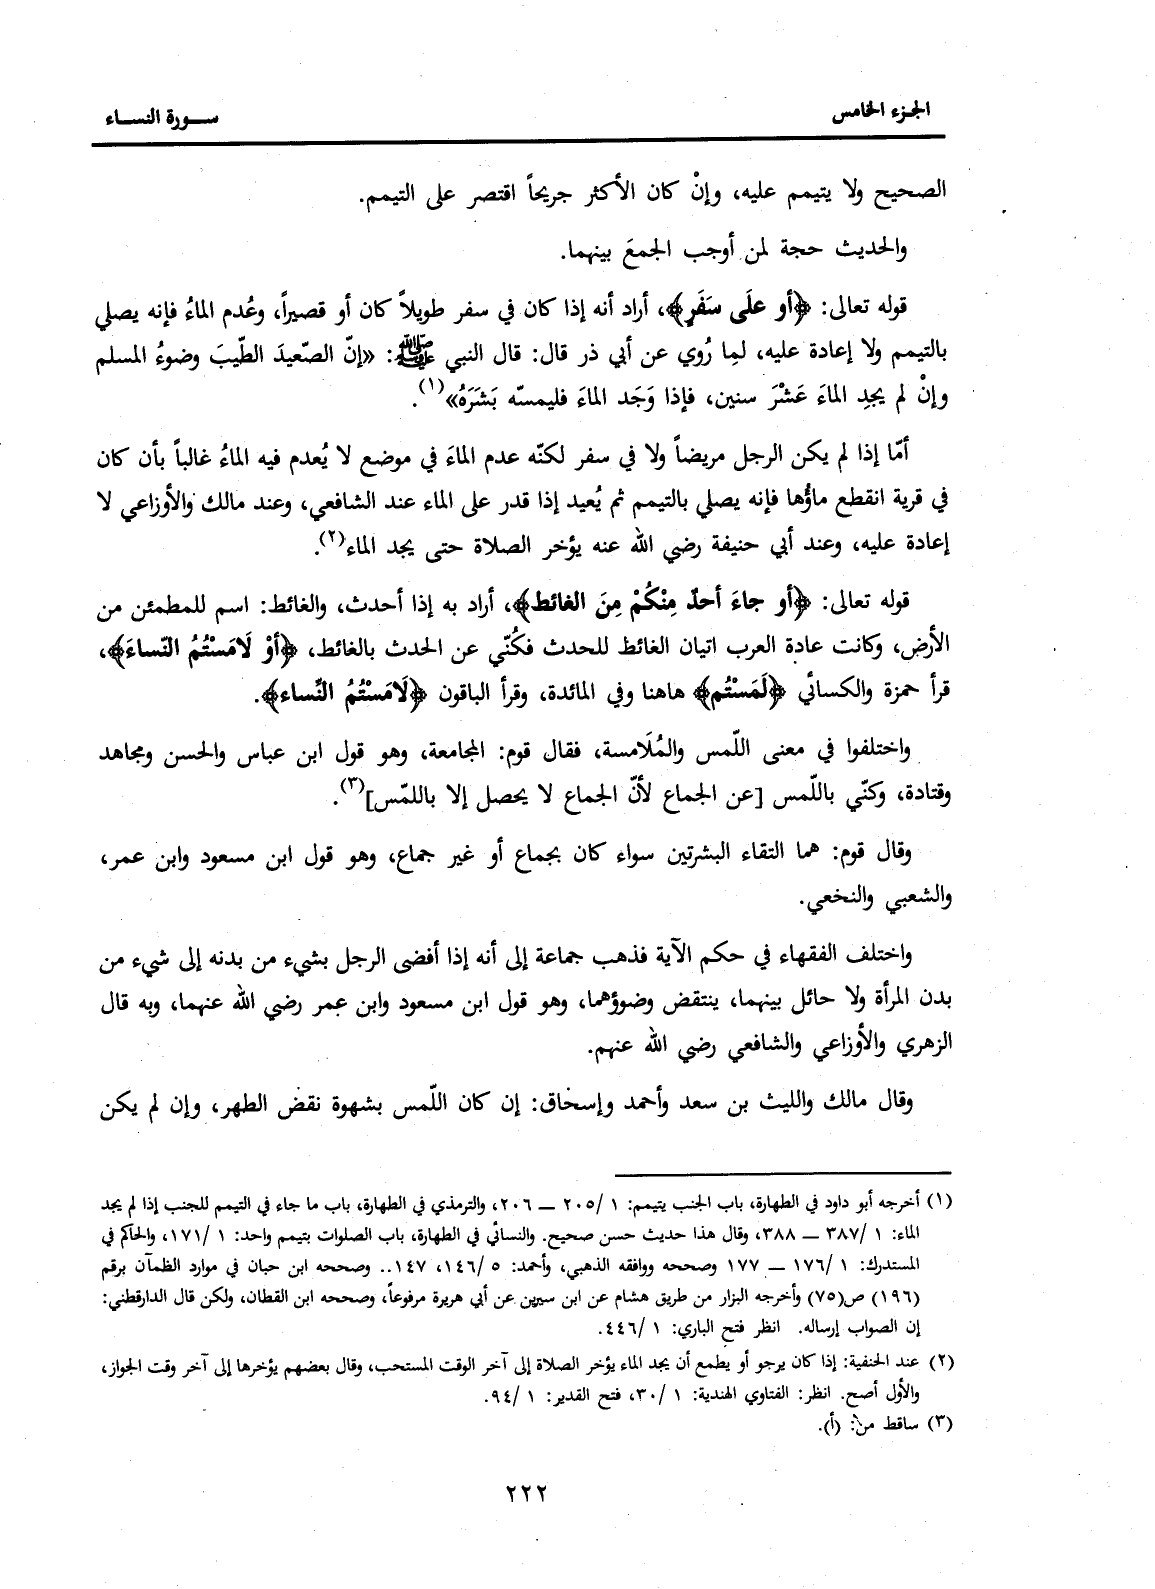 الجزء الخامس
ســورة النســاء
الصحيح ولا يتيمم عليه، وإنْ كان الأكثر جريحاً اقتصر على التيمم.
والحديث حجة لمن أوجب الجمعَ بينهما.
قوله تعالى: ﴿أو علَى سَفَرٍ﴾، أراد أنه إذا كان في سفر طويلاً كان أو قصيراً، وعُدم الماءُ فإنه يصلي
بالتيمم ولا إعادة عليه، لمِا رُوي عن أبي ذر قال: قال النبي ﷺ: «إنّ الصّعيدَ الطّيبَ وضوءُ المسلم
وإنْ لم يجدِ الماءَ عَشْرَ سنين، فإذا وَجَد الماءَ فليمسّه بَشَرَهُ»(١).
أمّا إذا لم يكن الرجل مريضاً ولا في سفر لكنّه عدم الماءَ في موضع لا يُعدم فيه الماءُ غالباً بأن كان
في قرية انقطع ماؤُها فإنه يصلي بالتيمم ثم يُعيد إذا قدر على الماء عند الشافعي، وعند مالك والأوزاعي لا
إعادة عليه، وعند أبي حنيفة رضي الله عنه يؤخر الصلاة حتى يجد الماء(٢).
قوله تعالى: ﴿أو جاءَ أحدٌ مِنْكُمْ مِنَ الغائط﴾، أراد به إذا أحدث، والغائط: اسم للمطمئن من
الأرض، وكانت عادة العرب اتيان الغائط للحدث فكُنّي عن الحدث بالغائط، ﴿أوْ لَامَسْتُمُ النّساءَ﴾،
قرأ حمزة والكسائي ﴿لَمَسْتُم﴾ هاهنا وفي المائدة، وقرأ الباقون ﴿لَامَسْتُمُ النِّساء﴾.
واختلفوا في معنى اللّمس والمُلَامسة، فقال قوم: المجامعة، وهو قول ابن عباس والحسن ومجاهد
وقتادة، وكنّي باللّمس [عن الجماع لأنّ الجماع لا يحصل إلا باللمّس](٣).
وقال قوم: هما التقاء البشرتين سواء كان بجماع أو غير جماع، وهو قول ابن مسعود وابن عمر،
والشعبي والنخعي.
واختلف الفقهاء في حكم الآية فذهب جماعة إلى أنه إذا أفضى الرجل بشيء من بدنه إلى شيء من
بدن المرأة ولا حائل بينهما، ينتقض وضوؤهما، وهو قول ابن مسعود وابن عمر رضي الله عنهما، وبه قال
الزهري والأوزاعي والشافعي رضي الله عنهم.
وقال مالك والليث بن سعد وأحمد وإسحاق: إن كان اللّمس بشهوة نقض الطهر، وإن لم يكن
(١) أخرجه أبو داود في الطهارة، باب الجنب يتيمم: ١ /٢٠٥ ــ ٢٠٦، والترمذي في الطهارة، باب ما جاء في التيمم للجنب إذا لم يجد
الماء: ١ /٣٨٧ ــ ٣٨٨، وقال هذا حديث حسن صحيح. والنسائي في الطهارة، باب الصلوات بتيمم واحد: ١ /١٧١، والحاكم في
المستدرك: ١ /١٧٦ ــ ١٧٧ وصححه ووافقه الذهبي، وأحمد: ٥ /١٤٦، ١٤٧.. وصححه ابن حبان في موارد الظمآن برقم
(١٩٦) ص(٧٥) وأخرجه البزار من طريق هشام عن ابن سيرين عن أبي هريرة مرفوعاً، وصححه ابن القطان، ولكن قال الدارقطني:
إن الصواب إرساله. انظر فتح الباري: ١ /٤٤٦.
(٢) عند الحنفية: إذا كان يرجو أو يطمع أن يجد الماء يؤخر الصلاة إلى آخر الوقت المستحب، وقال بعضهم يؤخرها إلى آخر وقت الجواز،
والأول أصح. انظر: الفتاوي الهندية: ١ /٣٠، فتح القدير: ١ /٩٤.
(٣) ساقط من: (أ).
٢٢٢